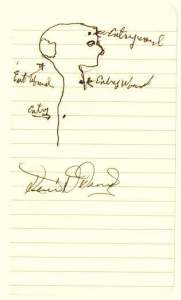 Entry wound
Exit Wound
Entry Wound
Entry